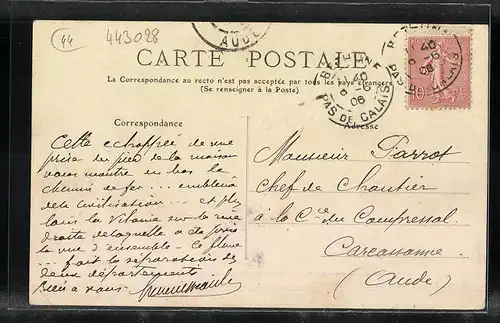 44
443028
AUDE
CARTE POSTALE
La Correspondance au recto n'est pas acceptée par tous les pays étrangers
(Se renseigner à la Poste)
PAS DE CALAIS
06
PAS DE CALAIS
06
Correspondance
Adresse
Cette echappée de vue
prise du pied de la maison
vous montre en bas le
chemin de fer... embleme
de la civilisation... et plus
loin la sur la rive
droite de laquelle a été prise
la vue d'ensemble - Ce fleuve
... fait la séparation des
deux départements
Bien à vous
Monsieur Parrot
Chef de Chantier
à la Cie du Compressol
Carcassonne
(Aude)